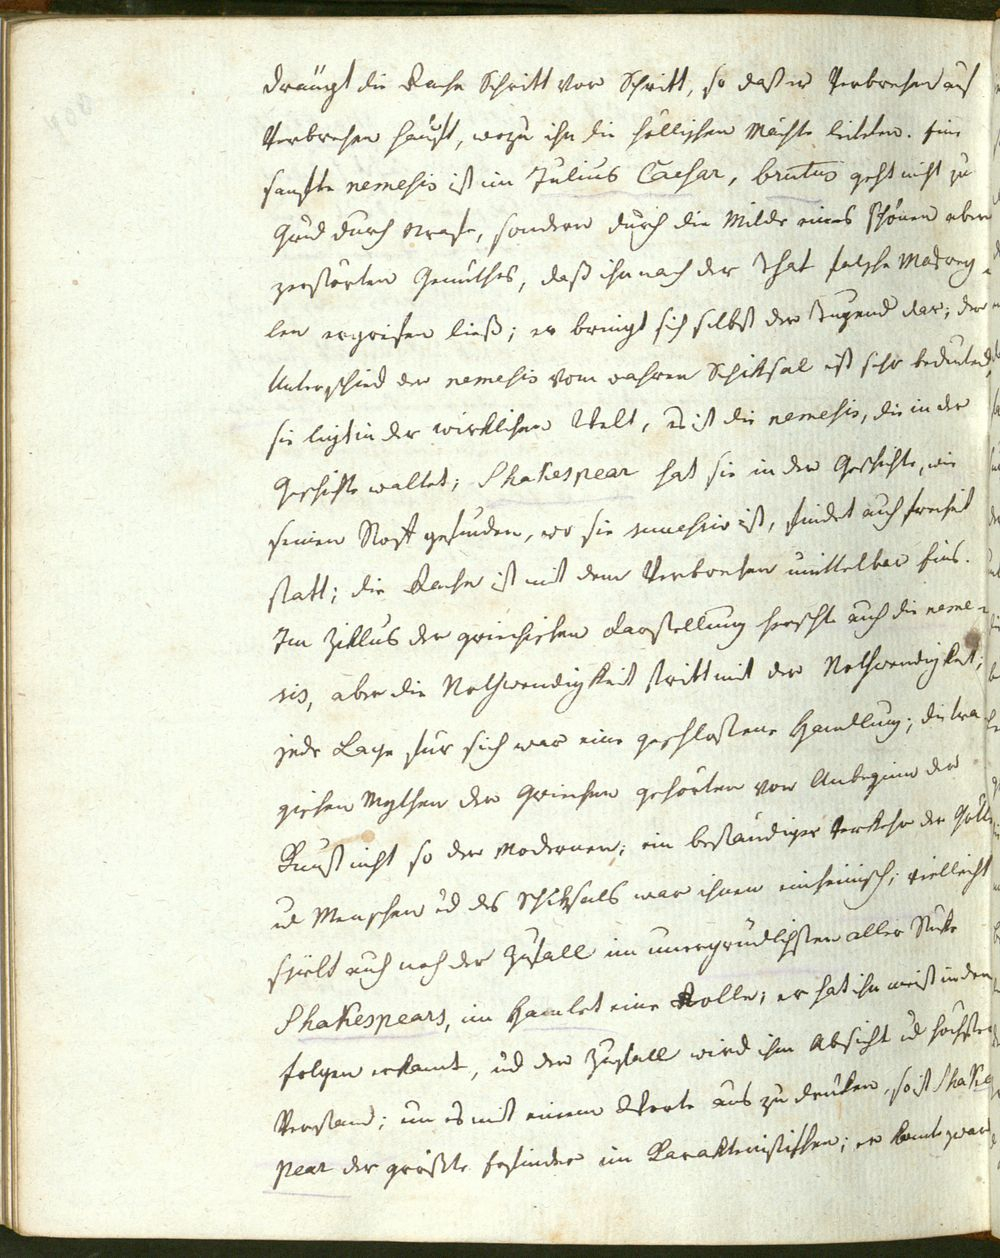 drängt die Rache Schritt vor Schritt, so daß er Verbrechen auf
Verbrechen häuft, wozu ihn die höllischen Mächte leiteten. Eine
sanfte nemesis ist im Julius Caesar, brutus geht nicht zu
Grund durch Strafe, sondern durch die Milde eines schönen aber
zerstörten Gemüthes, daß ihn nach der That falsche Maßreg
len ergreifen ließ; er bringt sich selbst der Tugend dar; der
Unterschied der nemesis vom wahren Schiksal ist sehr bedeutend,
sie liegt in der wirklichen Welt, es ist die nemesis, die in der
Geschichte waltet; Shakespear hat sie in der Geschichte, wie
seinen Stoff gefunden, wo sie nemesis ist, findet auch Freiheit
statt; die Rache ist mit dem Verbrechen unmittelbar Eins.
Im Ziklus der griechischen Darstellung herschte auch die neme-
sis, aber die Nothwendigkeit stritt mit der Nothwendigkeit;
jede Lage für sich war eine geschloßene Handlung; die tra
gischen Mythen der Griechen gehörten vor Anbeginn der
Kunst nicht so der Modernen; ein beständiger Verkehr der Götter
ud Menschen ud des Schiksals war ihnen einheimisch; vielleicht
spielt auch noch der Zufall im unergründlichsten aller Stüke
Shakespears, im Hamlet eine Rolle; er hat ihn meist in den
folgen erkannt, ud der Zufall wird ihm Absicht ud höchster
Verstand; um es mit einem Worte aus zu drüken, so ist Shake
pear der größte Erfinder im Karakteristischen; er kannte zwar